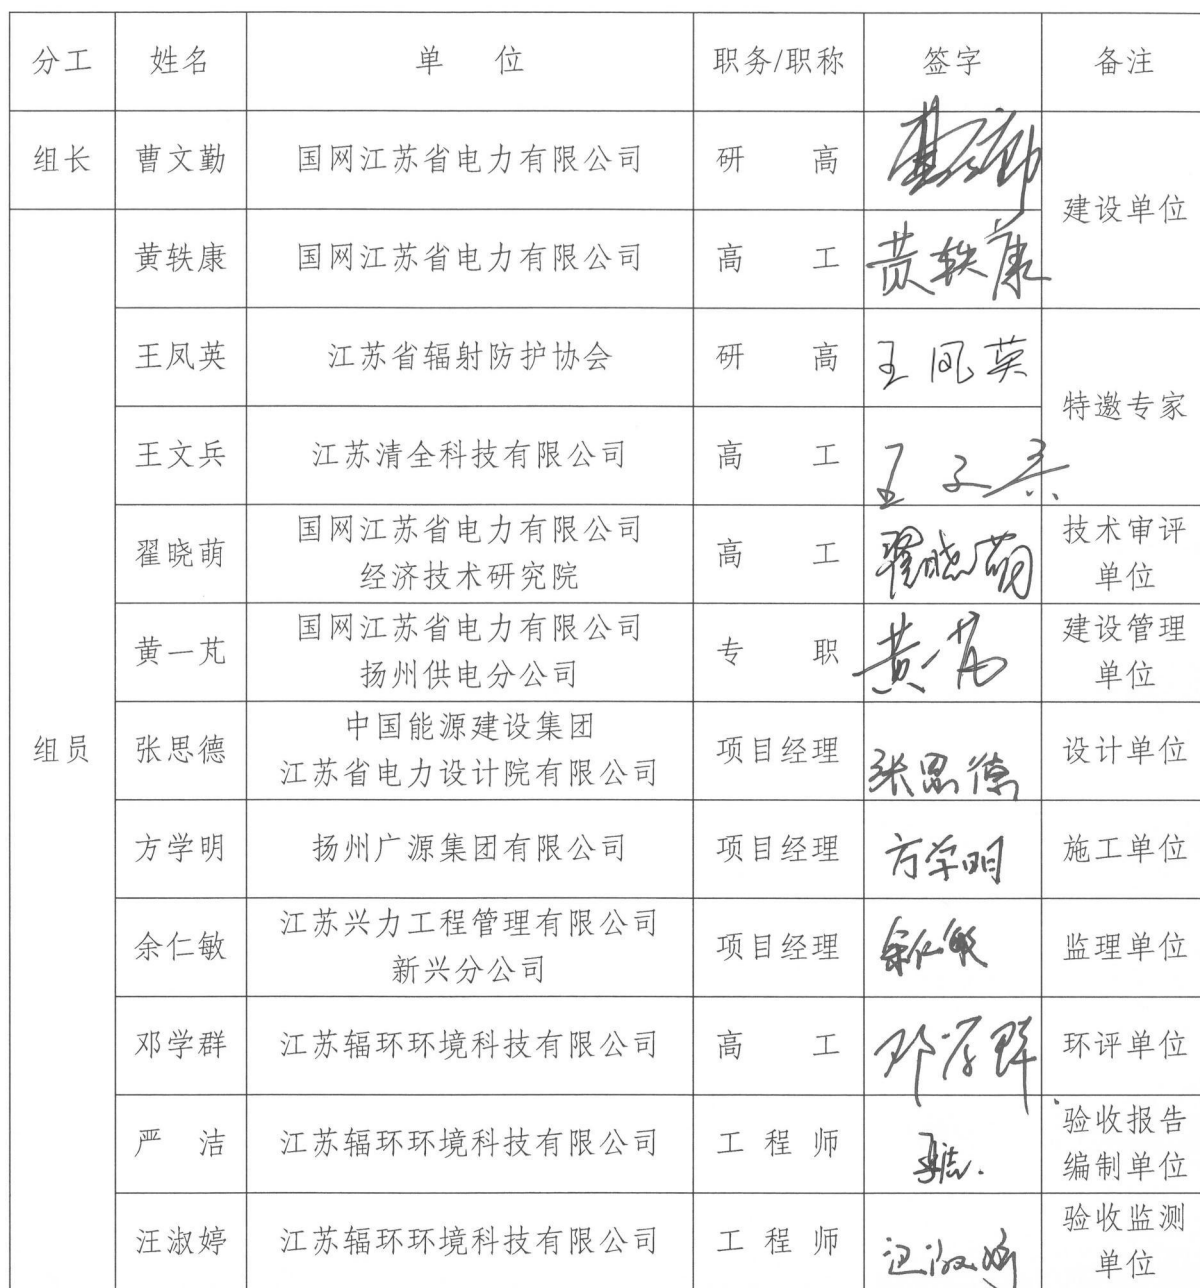 分工 姓名 单 位 职务/职称 签字 备注
组长 曹文勤 国网江苏省电力有限公司 研 高 曹文勤 建设单位
组员 黄轶康 国网江苏省电力有限公司 高 工 黄轶康
王凤英 江苏省辐射防护协会 研 高 王凤英 特邀专家
王文兵 江苏清全科技有限公司 高 工 王文兵
翟晓萌 国网江苏省电力有限公司
经济技术研究院 高 工 翟晓萌 技术审评
单位
黄一芃 国网江苏省电力有限公司
扬州供电分公司 专 职 黄一芃 建设管理
单位
张思德 中国能源建设集团
江苏省电力设计院有限公司 项目经理 张思德 设计单位
方学明 扬州广源集团有限公司 项目经理 方学明 施工单位
余仁敏 江苏兴力工程管理有限公司
新兴分公司 项目经理 余仁敏 监理单位
邓学群 江苏辐环环境科技有限公司 高 工 邓学群 环评单位
严 洁 江苏辐环环境科技有限公司 工 程 师 严洁 验收报告
编制单位
汪淑婷 江苏辐环环境科技有限公司 工 程 师 汪淑婷 验收监测
单位